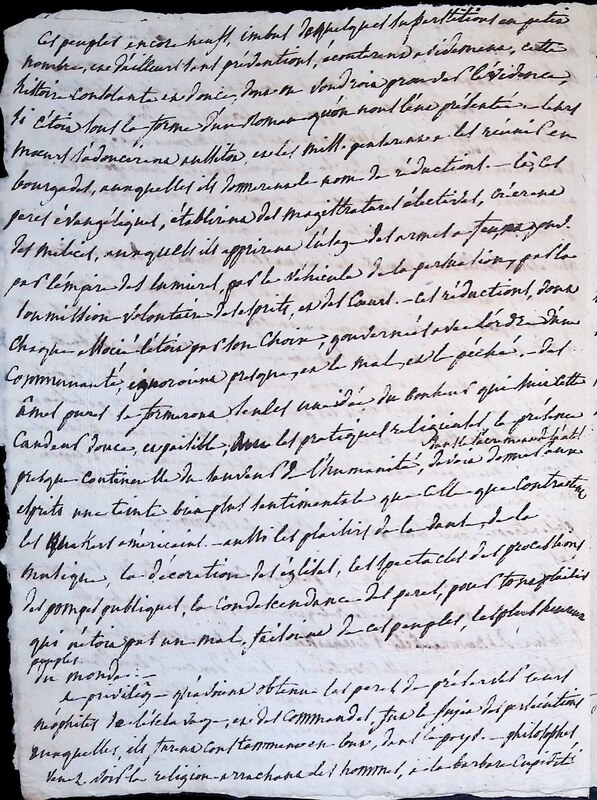 Ces peuples encore neufs, imbus de quelques superstitions en petit
nombre, et d'ailleurs sans pretentions, écouterent avidement, cette
histoire consolante et douce, dont on voudroit prouver l'évidence,
si c'étoit sous la forme d'un roman qu'on nous l'eut présenté. leurs
moeurs s'adoucirent aussitot, et les miss. penserent a les réunir en
bourgades, auxquelles ils donnerent le nom de réductions. - là, ces
peres évangéliques, établirent des magistratures électives, créerent
des milices, auxquelles ils apprirent l'usage des armes a feu,
par l'empire des lumieres, par le véhicule de la persuasion, par la
soumission volontaire des esprits, et des coeurs. - Ces réductions, dont
chaque associé l'étoit par son choix, gouvernées avec l'ordre d'une
Communauté, ignoroient presque, et le mal, et le péché. - des
âmes pures se formeront seules une idée du bonheur qui suit cette
Candeur douce, et paisible, les pratiques religieuses la présence
presque continuelle du sauveur de l'humanité, dans le sacrement de l'autel devoit donner aux
esprits une teinte bien plus sentimentale que celle que contractent
les Quakers américains - aussi les plaisirs de la danse, de la
musique, la décoration des églises, les spectacles des processions
des pompes publiques, la condescendance des peres, pour tous plaisirs
qui n'étoit pas un mal, faisoient de ces peuples, les plus heureux
peuples
du monde. -
le privilège qu'avoient obtenu les peres de préserver leurs
néophites de l'esclavage, et des commandes, fut le sujet des persécutions
auxquelles, ils furent constamment en but, dans le pays. - philosophes
venez voir la religion arrachant des hommes, a la barbare cupidité